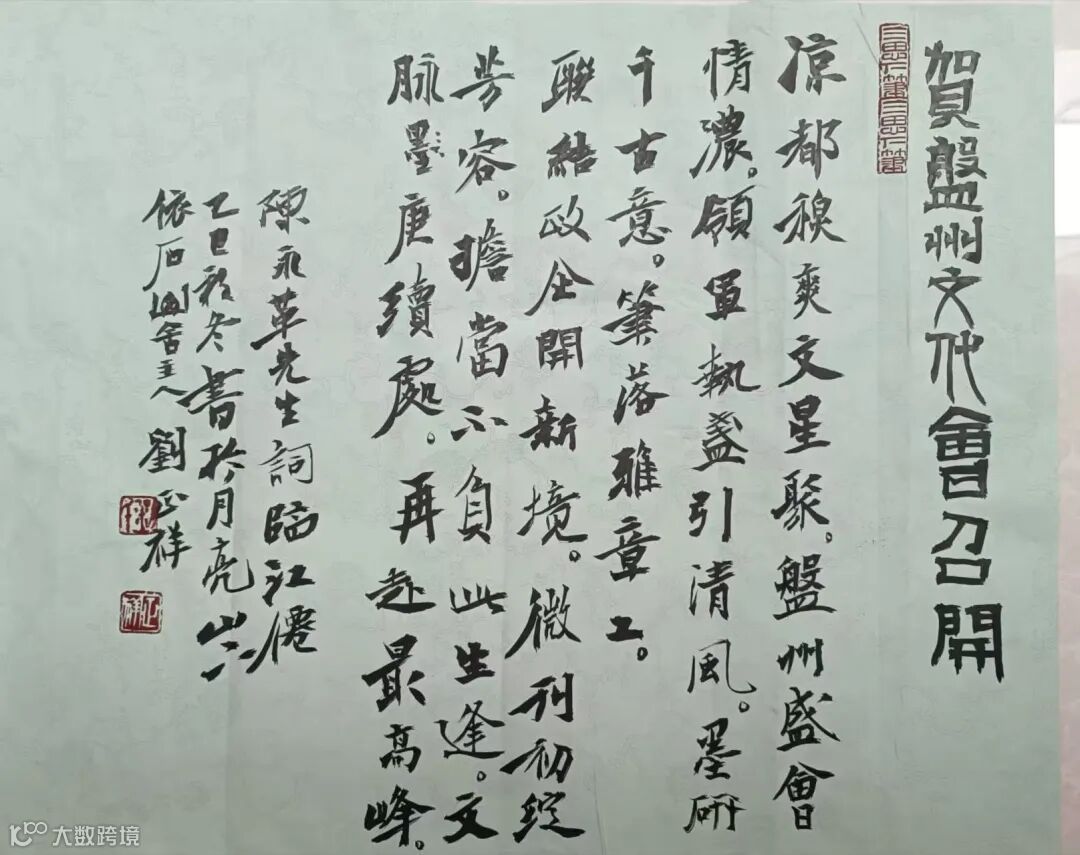 賀盤州文代會召開
涼都爽文星聚。盤州盛會
情濃。領軍執盞引清風。墨研
千古意。筆落雅章工。
聯結政企開新境。微刊初綻
芳容。擔當不負此生逢。文
脉墨庚續處。再赴最高峰。
陳永革先生詞臨江僊
乙巳初冬書於月亮山下
依石山舍主人劉正祥
大数跨境